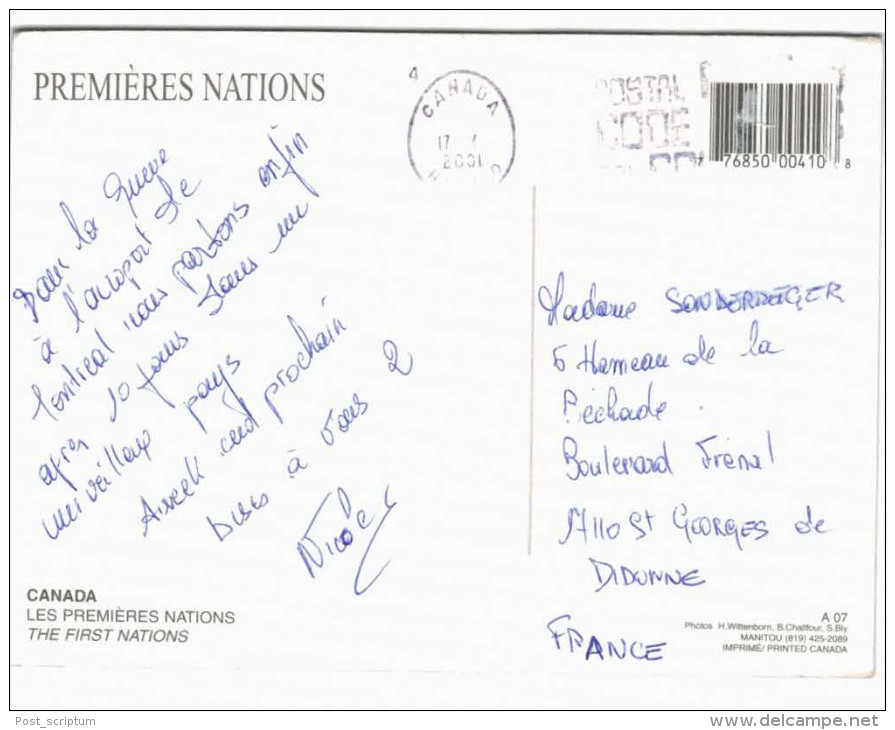 PREMIÈRES NATIONS
4
CANADA
17
2001
POSTAL
CODE
76850 00410 8
Dans la queue
à l'aéroport de
Montréal nous partons enfin
après 10 jours dans un
merveilleux pays
A week end prochain
bises à vous 2
Nicole
Madame SONDEREGER
5 Hameau de la
Péchade.
Boulevard Frénal
17110 St GEORGES de
DIDONNE
FRANCE
CANADA
LES PREMIÈRES NATIONS
THE FIRST NATIONS
A 07
Photos H.Wittenborn, B.Challfour, S.Bly
MANITOU (819) 425-2089
IMPRIMÉ/ PRINTED CANADA
Post_scriptum
www.delcampe.net